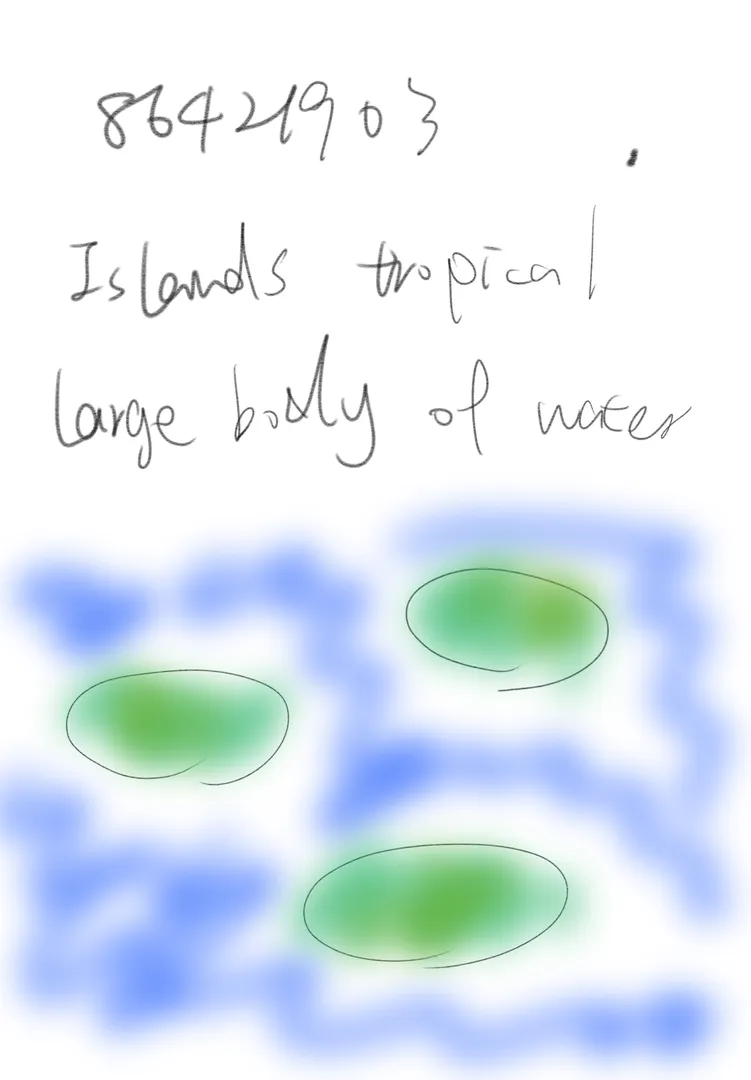 86421903
Islands tropical
large body of water